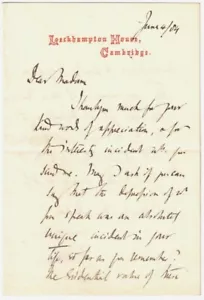 June 4/04
Leckhampton House,
Cambridge.
Dear Madam
I thank you much for your
kind word of appreciation, & for
the interesting incident wh. you
send me. May I ask if you can
say that the depression of wh
you speak was an absolutely
unique incident in your
life, so far as you remember?
The evidential value of these